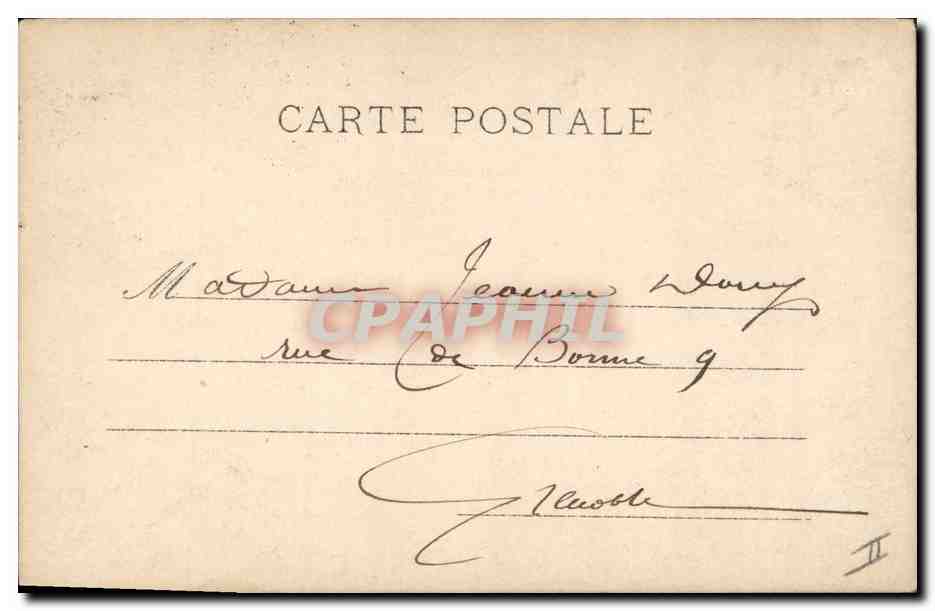 CARTE POSTALE
Madame Jeanne
CPAPHIL
rue de Bonne 9
Grenoble
II